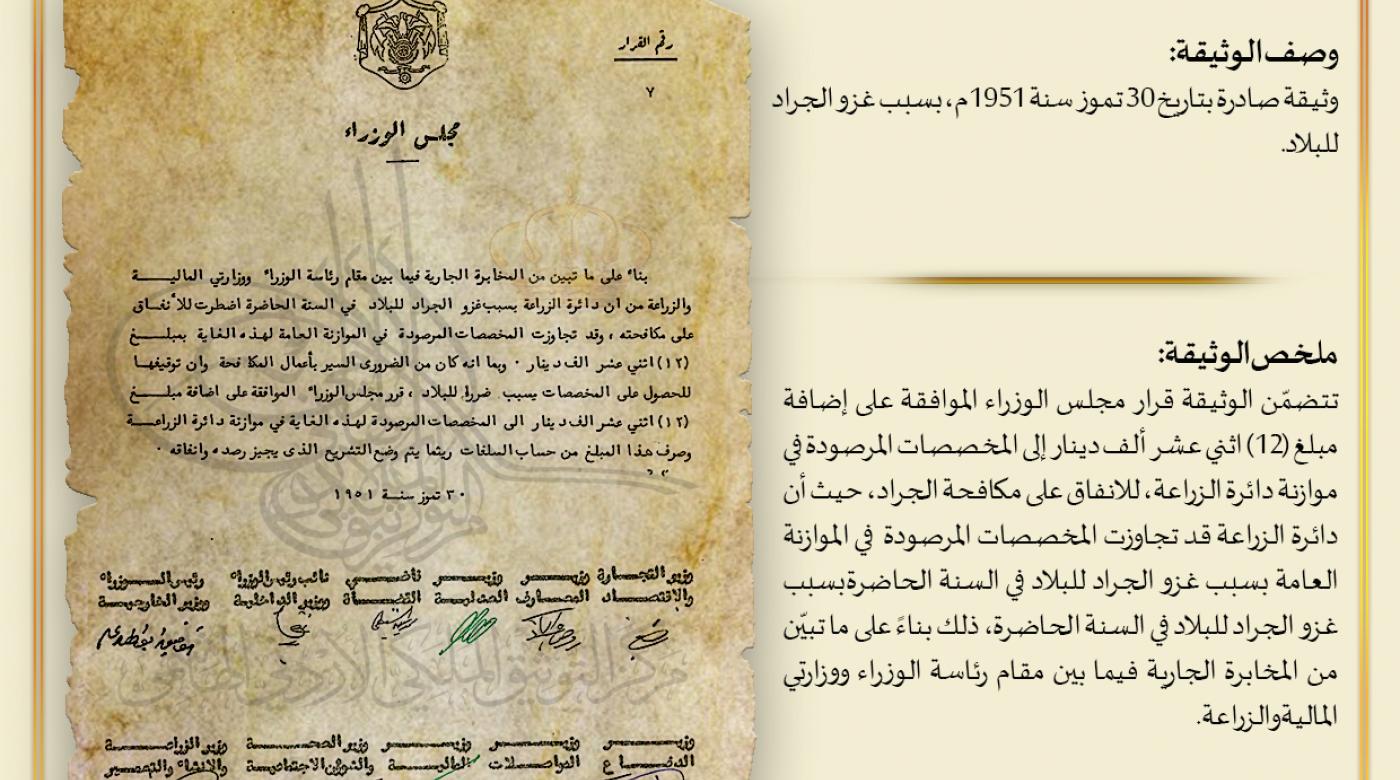 وصف الوثيقة:
وثيقة صادرة بتاريخ 30 تموز سنة 1951م، بسبب غزو الجراد
للبلاد.
ملخص الوثيقة:
تتضمّن الوثيقة قرار مجلس الوزراء الموافقة على إضافة
مبلغ (12) اثني عشر ألف دينار إلى المخصصات المرصودة في
موازنة دائرة الزراعة، للانفاق على مكافحة الجراد، حيث أن
دائرة الزراعة قد تجاوزت المخصصات المرصودة في الموازنة
العامة بسبب غزو الجراد للبلاد في السنة الحاضرة بسبب
غزو الجراد للبلاد في السنة الحاضرة، ذلك بناءً على ما تبيّن
من المخابرة الجارية فيما بين مقام رئاسة الوزراء ووزارتي
المالية والزراعة.
رقم القرار
٧
مجلس الوزراء
بناء على ما تبين من المخابرة الجارية فيما بين مقام رئاسة الوزراء ووزارتي المالية
والزراعة من ان دائرة الزراعة بسبب غزو الجراد للبلاد في السنة الحاضرة اضطرت للأنفاق
على مكافحته ، وقد تجاوزت المخصصات المرصودة في الموازنة العامة لهذه الغاية بمبلغ
(١٢) اثني عشر الف دينار . وبما انه كان من الضروري السير بأعمال المكافحة وان توقيفها
للحصول على المخصصات يسبب ضررا للبلاد ، قرر مجلس الوزراء الموافقة على اضافة مبلغ
(١٢) اثني عشر الف دينار الى المخصصات المرصودة لهذه الغاية في موازنة دائرة الزراعة
وصرف هذا المبلغ من حساب السلفات ريثما يتم وضع التشريع الذي يجيز رصده وانفاقه .
٣٠ تموز سنة ١٩٥١
وزير التجارة وزير وزير قاضي نائب رئيس الوزراء رئيس الوزراء
والاقتصاد المعارف العدلية القضاة ووزير الداخلية ووزير الخارجية
مركز التوثيق الملكي الأردني الهاشمي
وزير وزير وزير وزير الصحة وزير الزراعة
الدفاع المواصلات المالية والشؤون الاجتماعية والانشاء والتعمير